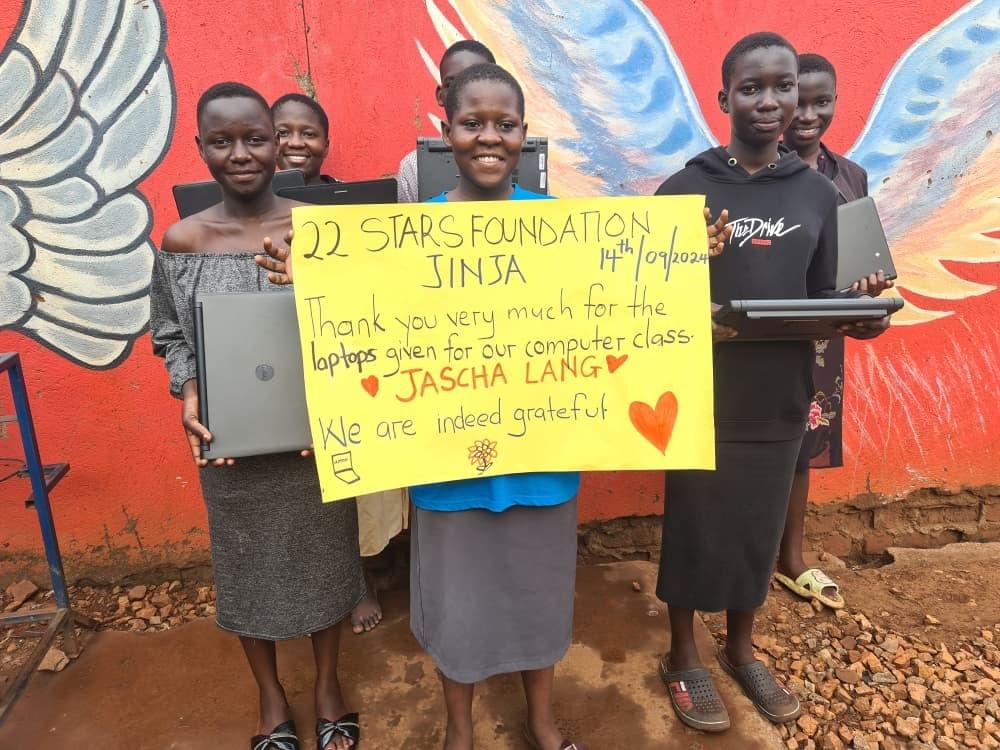 22 STARS FOUNDATION
JINJA 14th/09/2024
Thank you very much for the
laptops given for our computer class.
JASCHA LANG
We are indeed grateful
The Drive